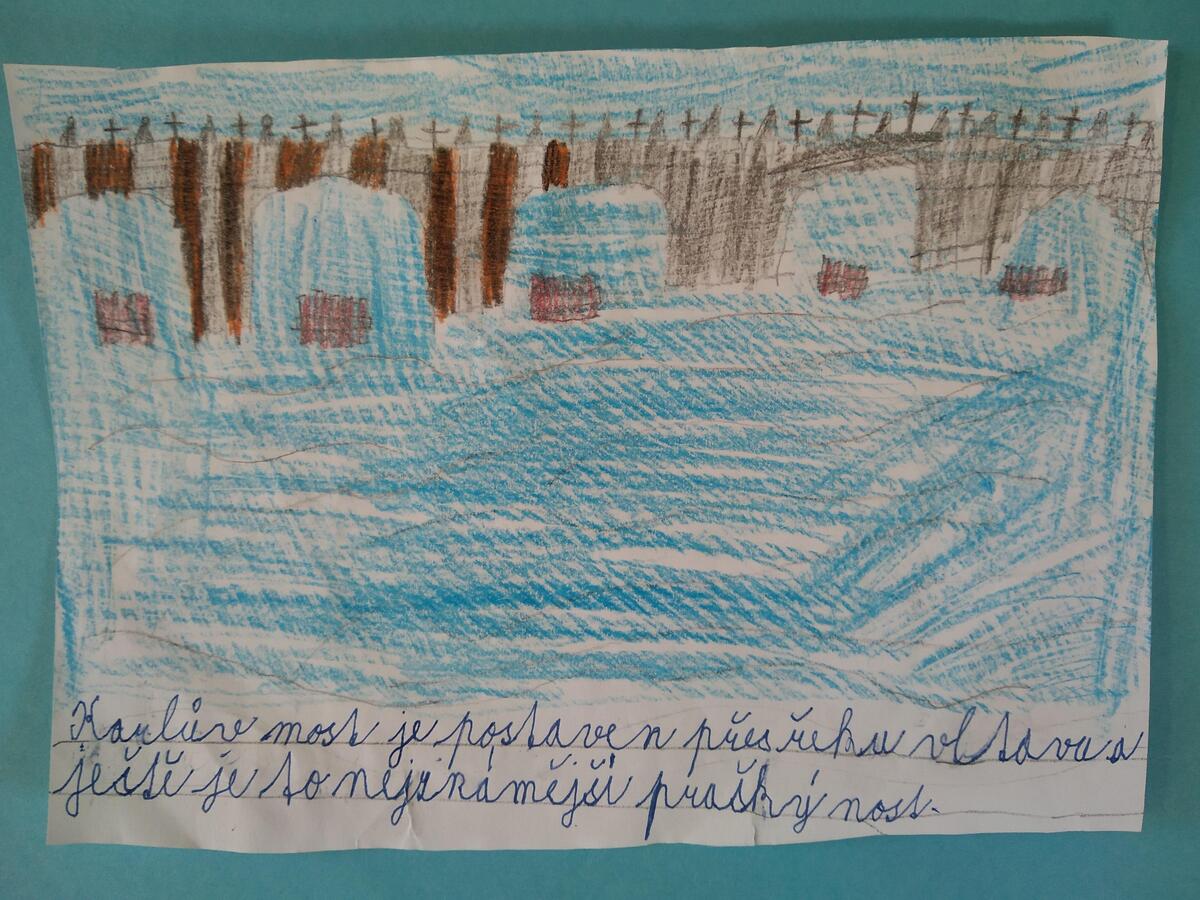 Karlův most je postaven přes řeku vltavu a
ještě je to nejzkámější pražký nost.